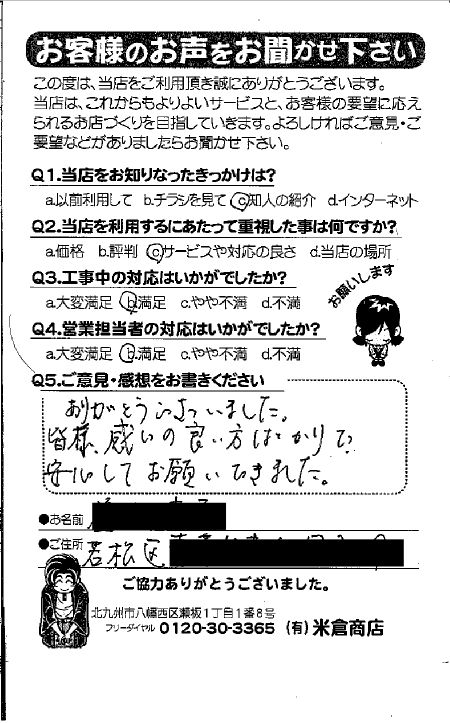 お客様のお声をお聞かせ下さい
この度は、当店をご利用頂き誠にありがとうございます。
当店は、これからもよりよいサービスと、お客様の要望に応え
られるお店づくりを目指していきます。よろしければご意見・ご
要望などがありましたらお聞かせ下さい。
Q1.当店をお知りなったきっかけは?
a.以前利用して b.チラシを見て c.知人の紹介 d.インターネット
Q2.当店を利用するにあたって重視した事は何ですか?
a.価格 b.評判 c.サービスや対応の良さ d.当店の場所
Q3.工事中の対応はいかがでしたか?
a.大変満足 b.満足 c.やや不満 d.不満
お願いします
Q4.営業担当者の対応はいかがでしたか?
a.大変満足 b.満足 c.やや不満 d.不満
Q5.ご意見・感想をお書きください
ありがとうございました。
皆様、感じの良い方ばかりで
安心してお願いできました。
●お名前
●ご住所 若松区
ご協力ありがとうございました。
北九州市八幡西区瀬板1丁目1番8号
フリーダイヤル 0120-30-3365 (有)米倉商店